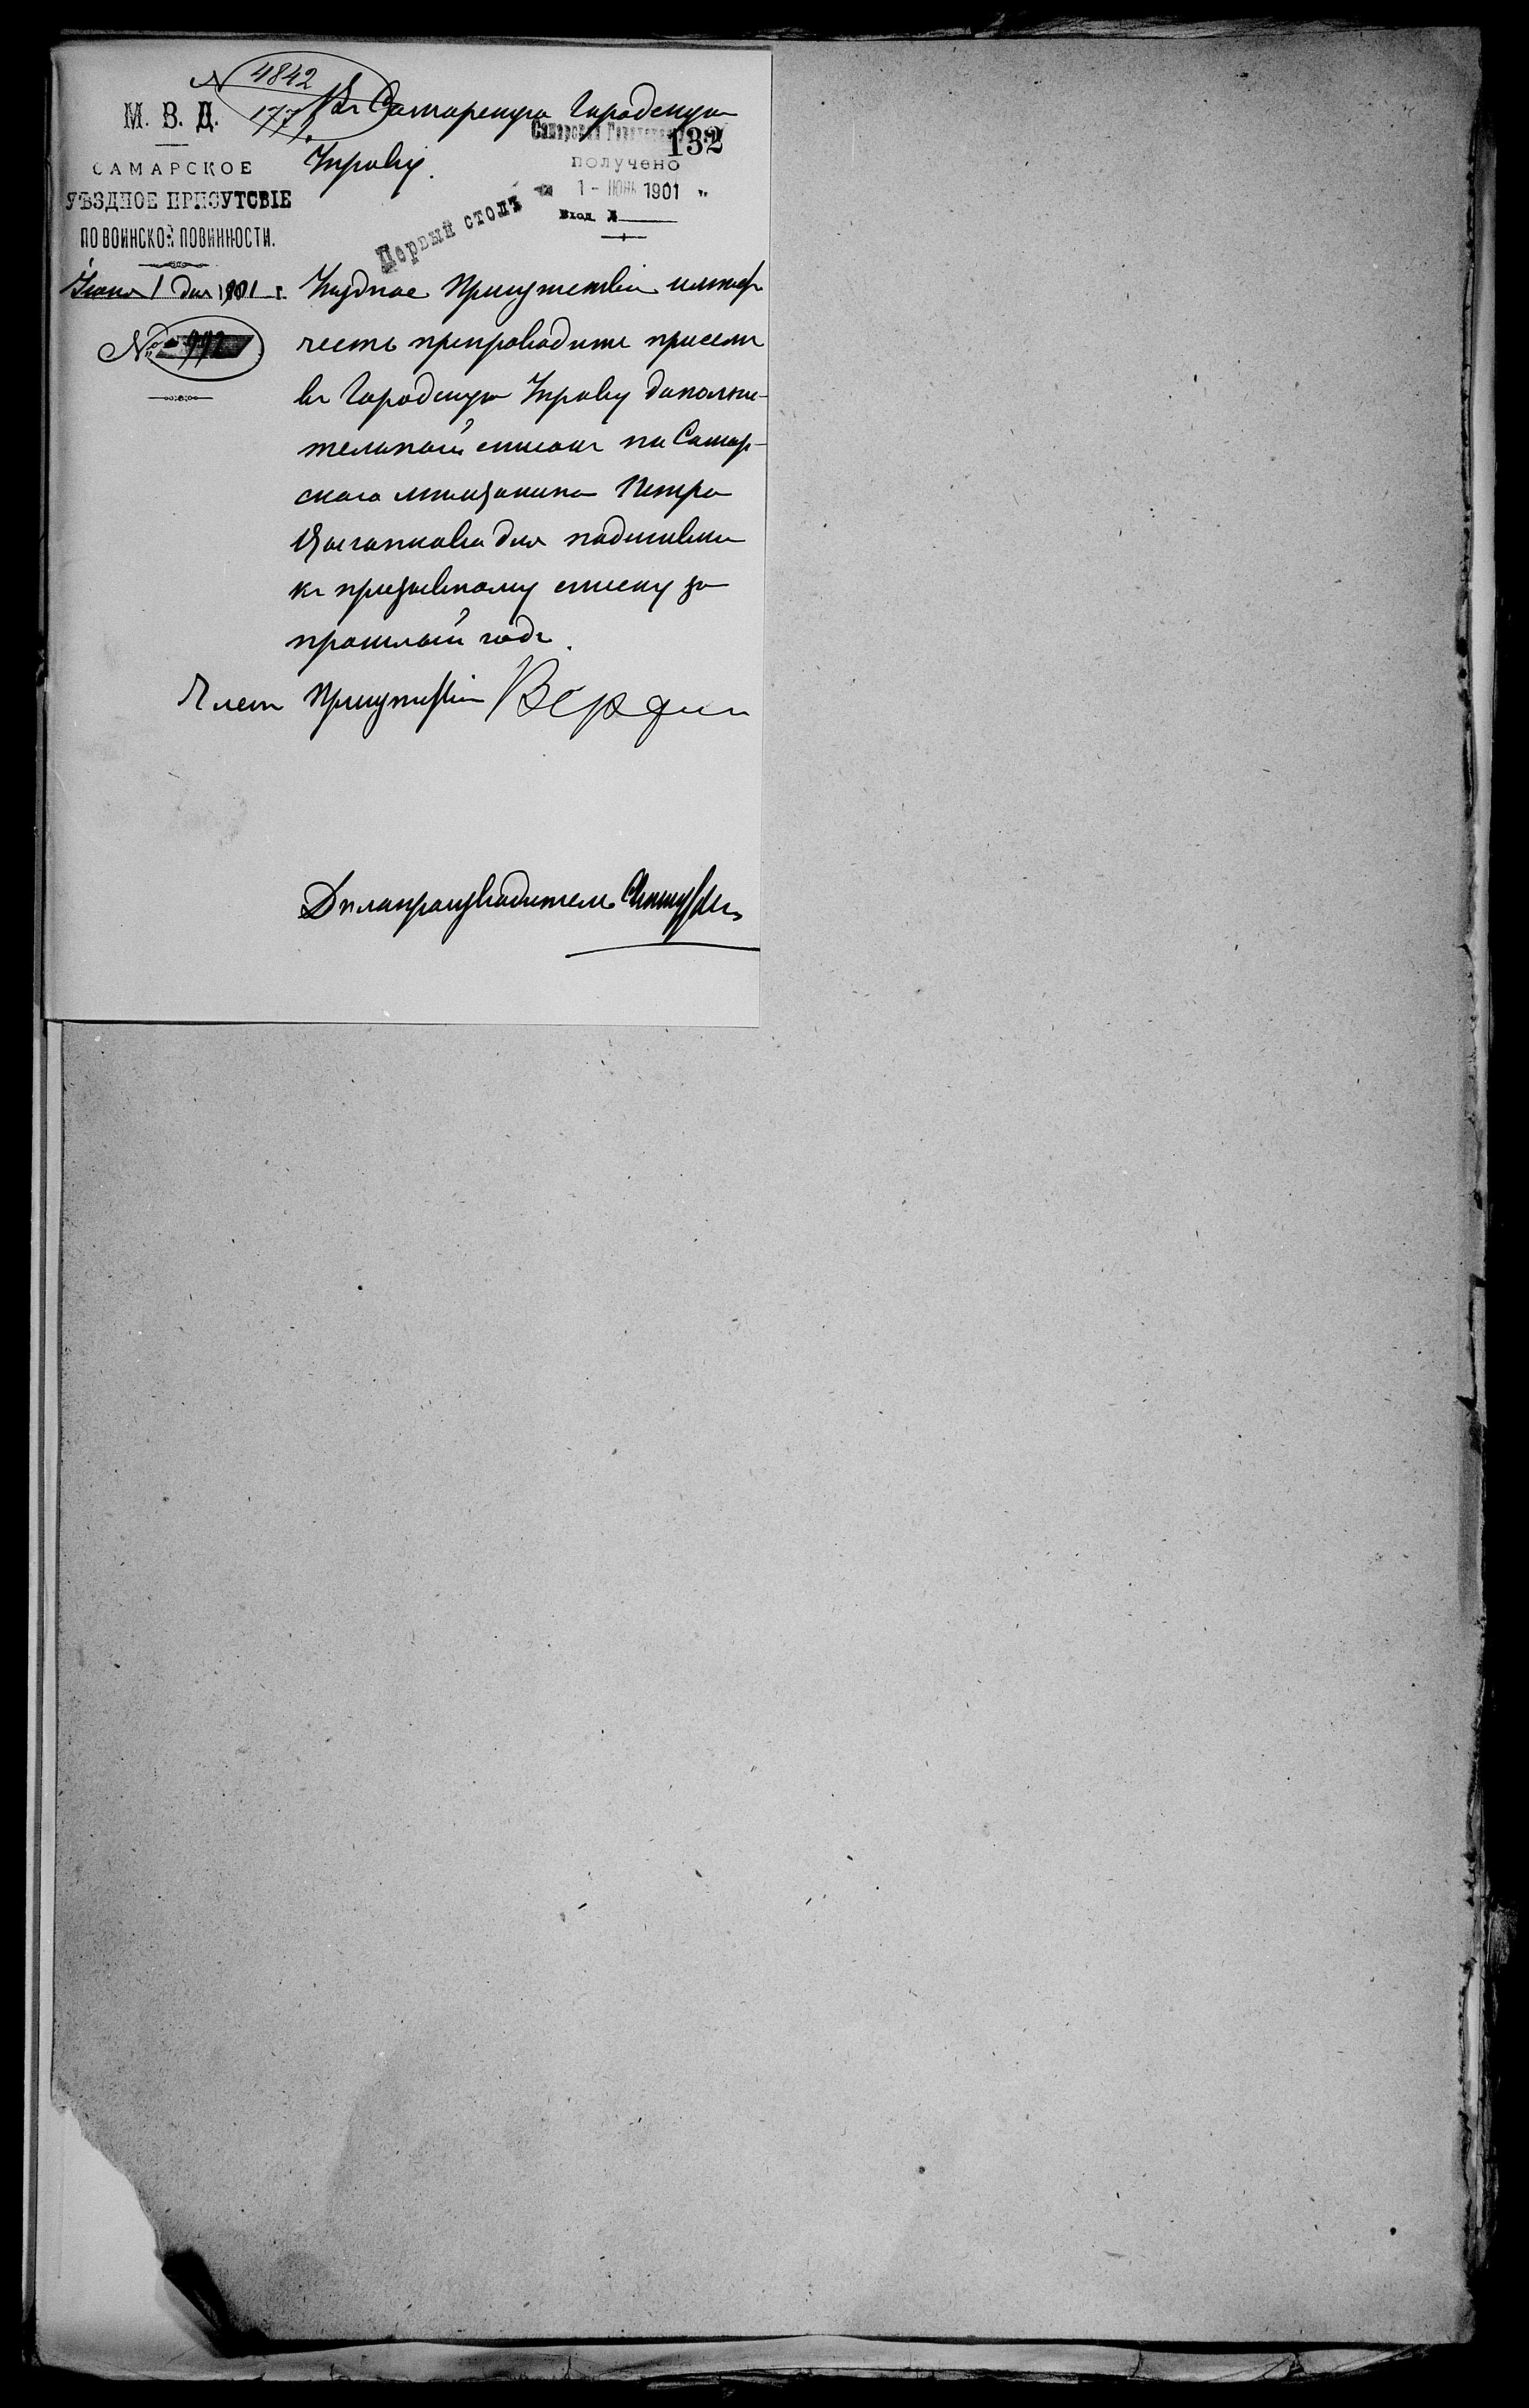 N 4842
177
М. В. Д.
САМАРСКОЕ
УѢЗДНОЕ ПРИСУТСВІЕ
ПО ВОИНСКОЙ ПОВИННОСТИ.
Іюня 1 дня 1901 г.
№ 992
Въ Самарскую Городскую
Управу.
132
Самарская
получено
1 - ИЮН 1901
Вход. №
Первый столъ
Уѣздное Присутствіе имѣетъ
честь препроводить при семъ
въ Городскую Управу дополни-
тельный списокъ на Самар-
скаго мѣщанина Петра
Цыганкова для подшивки
къ призывному списку за
прошлый годъ.
Членъ Присутствія
Дѣлопроизводитель